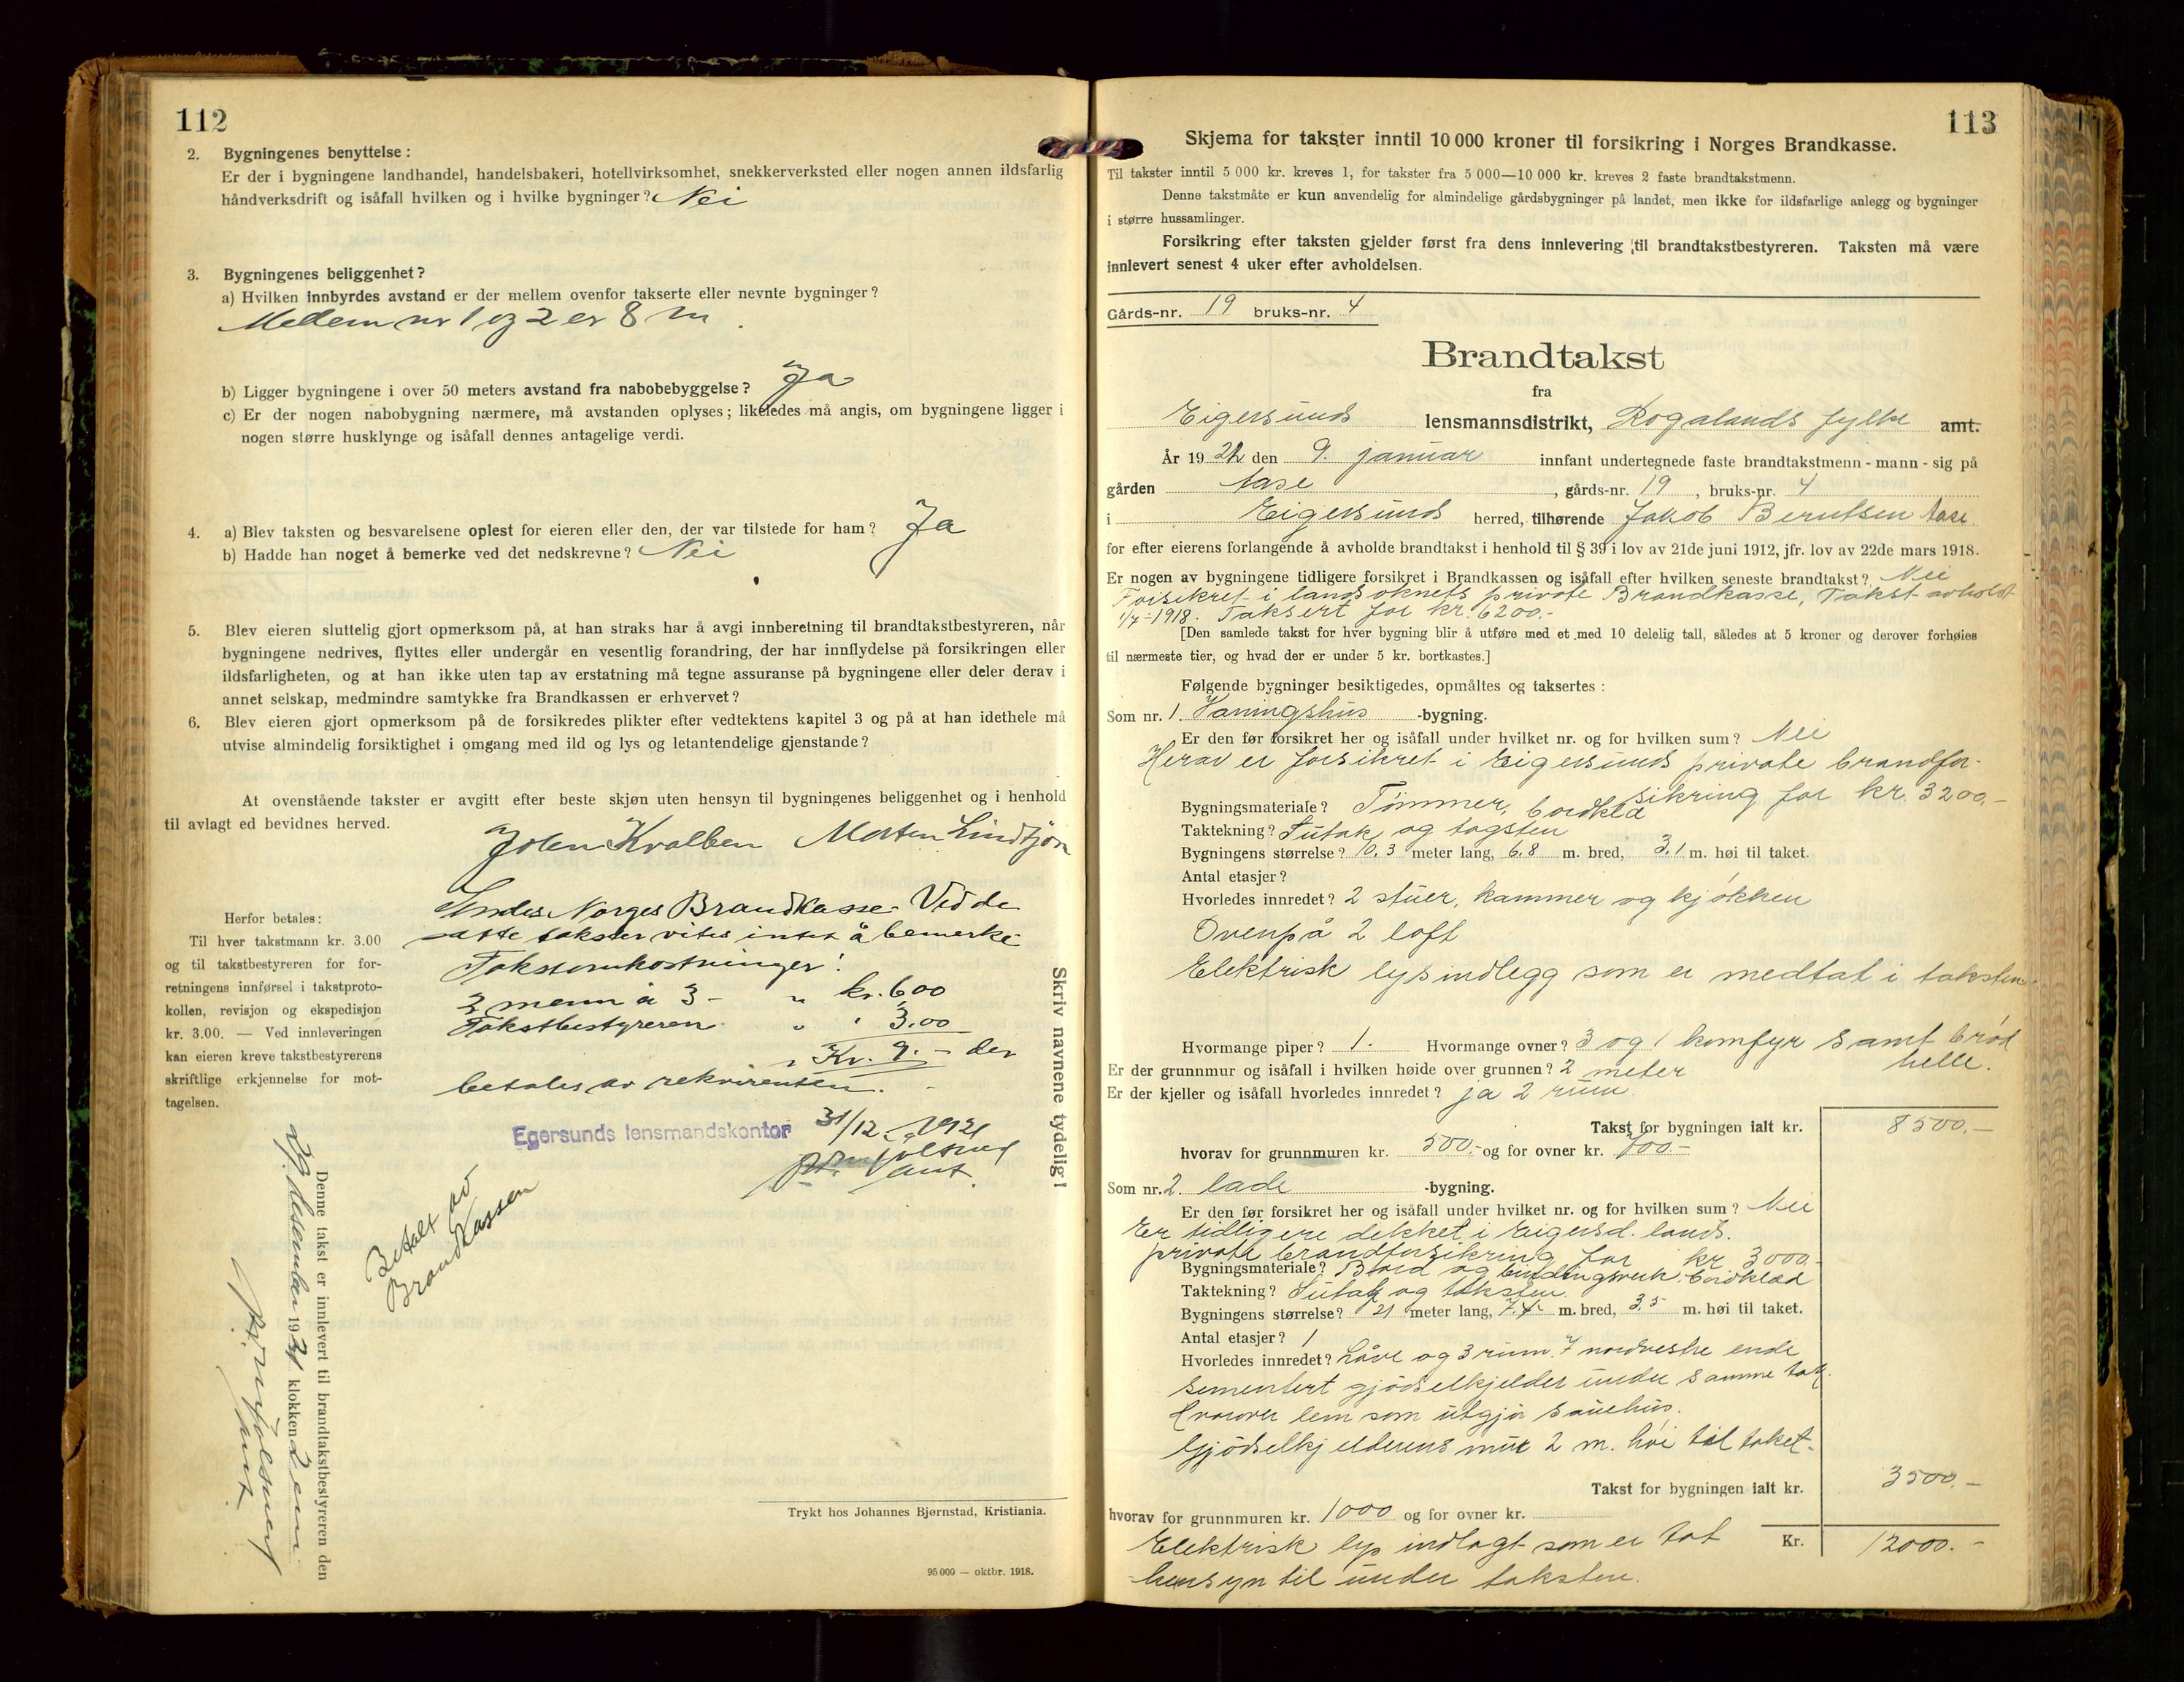 112
2. Bygningenes benyttelse:
Er der i bygningene landhandel, handelsbakeri, hotellvirksomhet, snekkerverksted eller nogen annen ildsfarlig
håndverksdrift og isåfall hvilken og i hvilke bygninger? Nei
3. Bygningenes beliggenhet?
a) Hvilken innbyrdes avstand er der mellem ovenfor takserte eller nevnte bygninger?
Mellem nr 1 og 2 er 8 m.
b) Ligger bygningene i over 50 meters avstand fra nabobebyggelse? Ja
c) Er der nogen nabobygning nærmere, må avstanden oplyses; likeledes må angis, om bygningene ligger i
nogen større husklynge og isåfall dennes antagelige verdi.
4. a) Blev taksten og besvarelsene oplest for eieren eller den, der var tilstede for ham? Ja
b) Hadde han noget å bemerke ved det nedskrevne? Nei
5. Blev eieren sluttelig gjort opmerksom på, at han straks har å avgi innberetning til brandtakstbestyreren, når
bygningene nedrives, flyttes eller undergår en vesentlig forandring, der har innflydelse på forsikringen eller
ildsfarligheten, og at han ikke uten tap av erstatning må tegne assuranse på bygningene eller deler derav i
annet selskap, medmindre samtykke fra Brandkassen er erhvervet?
6. Blev eieren gjort opmerksom på de forsikredes plikter efter vedtektens kapitel 3 og på at han idethele må
utvise almindelig forsiktighet i omgang med ild og lys og letantendelige gjenstande?
At ovenstående takster er avgitt efter beste skjøn uten hensyn til bygningenes beliggenhet og i henhold
til avlagt ed bevidnes herved.
Kvalben Morten Lindtjörn
Herfor betales:
Til hver takstmann kr. 3.00
og til takstbestyreren for for-
retningens innførsel i takstproto-
kollen, revisjon og ekspedisjon
kr. 3.00. — Ved innleveringen
kan eieren kreve takstbestyrerens
skriftlige erkjennelse for mot-
tagelsen.
Sendes Norges Brandkasse. Ved de
satte takster vites intet å bemerke
Takstomkostninger:
2 menn à 3 - " kr. 6,00
Takstbestyreren " " 3.00
" Kr. 9. - der
betales av rekvirenten.
Egersunds lensmandskontor 31/12 - 1921
Betalt av
Brandkassen
Skriv navnene tydelig!
Denne takst er innlevert til brandtakstbestyreren den
29 desember 1921 klokken 2 em
Trykt hos Johannes Bjørnstad, Kristiania.
95 000 — oktbr. 1918.
113
Skjema for takster inntil 10 000 kroner til forsikring i Norges Brandkasse.
Til takster inntil 5 000 kr. kreves 1, for takster fra 5 000—10 000 kr. kreves 2 faste brandtakstmenn.
Denne takstmåte er kun anvendelig for almindelige gårdsbygninger på landet, men ikke for ildsfarlige anlegg og bygninger
i større hussamlinger.
Forsikring efter taksten gjelder først fra dens innlevering til brandtakstbestyreren. Taksten må være
innlevert senest 4 uker efter avholdelsen.
Gårds-nr. 19 bruks-nr. 4
Brandtakst
fra
Eigersunds lensmannsdistrikt, Rogalands fylke amt.
År 19 den 9. januar innfant undertegnede faste brandtakstmenn - mann - sig på
gården Aase, gårds-nr. 19, bruks-nr. 4
i Eigersunds herred, tilhørende Jakob Berntsen Aase
for efter eierens forlangende å avholde brandtakst i henhold til § 39 i lov av 21de juni 1912, jfr. lov av 22de mars 1918.
Er nogen av bygningene tidligere forsikret i Brandkassen og isåfall efter hvilken seneste brandtakst? Nei
Forsikret i landsoknets private Brandkasse, Takst avholdt
1/7-1918. Taksert for kr. 6200.-
[Den samlede takst for hver bygning blir å utføre med et med 10 delelig tall, således at 5 kroner og derover forhøies
til nærmeste tier, og hvad der er under 5 kr. bortkastes.]
Følgende bygninger besiktigedes, opmåltes og taksertes:
Som nr. 1. Vaningshus -bygning.
Er den før forsikret her og isåfall under hvilket nr. og for hvilken sum? Nei
Herav er forsikret i Eigersunds private brandfor-
sikring for kr. 3200.-
Bygningsmateriale? Tømmer, bordklæ
Taktekning? Sutak og tagsten
Bygningens størrelse? 10,3 meter lang, 6,8 m. bred, 3,1 m. høi til taket.
Antal etasjer?
Hvorledes innredet? 2 stuer, kammer og kjøkken
Ovenpå 2 loft
Elektrisk lysindlegg som er medtat i taksten.
Hvormange piper? 1. Hvormange ovner? 3 og 1 komfyr samt brød
helle.
Er der grunnmur og isåfall i hvilken høide over grunnen? 2 meter
Er der kjeller og isåfall hvorledes innredet? ja 2 rum.
Takst for bygningen ialt kr. 8500.-
hvorav for grunnmuren kr. 500.- og for ovner kr. 700.-
Som nr. 2. lade -bygning.
Er den før forsikret her og isåfall under hvilket nr. og for hvilken sum? Nei
Er tidligere dekket i Eigersd. lands.
private brandforsikring for kr 3000.-
Bygningsmateriale? Bord og bindingsverk. bordklæd
Taktekning? Sutak og taksten.
Bygningens størrelse? 21 meter lang, 7.4 m. bred, 3,5 m. høi til taket.
Antal etasjer? 1
Hvorledes innredet? Låve og 3 rum. I nordvestre ende
sementert gjødselkjelder under samme tak.
Hvorover lem som utgjør sauehus.
Gjødselkjelderens mur 2 m. høi til taket.
Takst for bygningen ialt kr. 3500.-
hvorav for grunnmuren kr. 1000 og for ovner kr.
Elektrisk lys indlagt som er tat Kr. 12000.-
hensyn til under taksten.